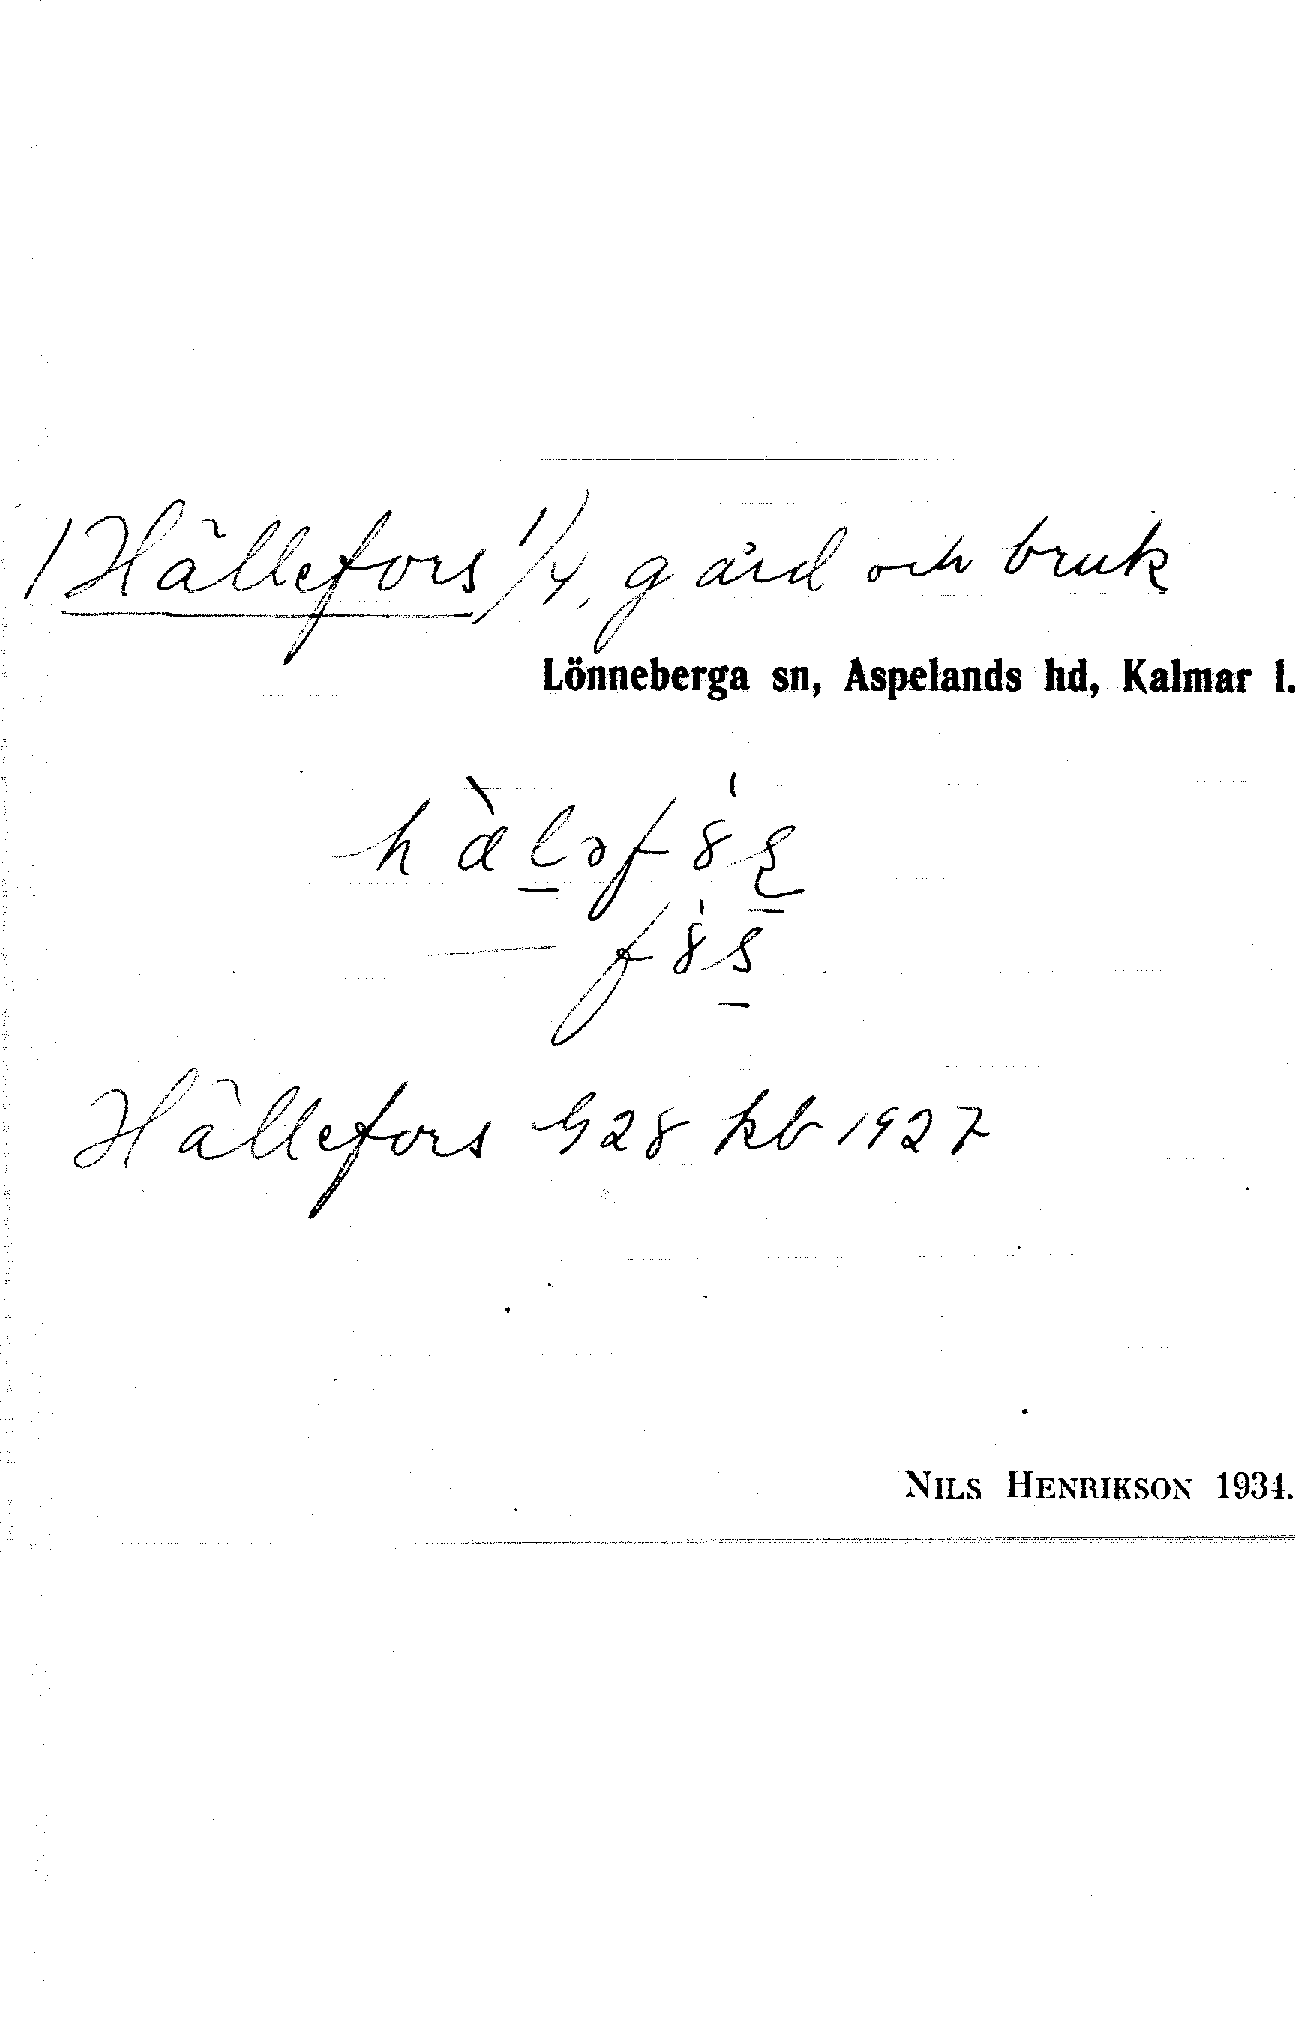 Hällefors 1/4, gård och bruk
Lönneberga sn, Aspelands hd, Kalmar l.
Hällefors G28 kb 1927
NILS HENRIKSON 1934.